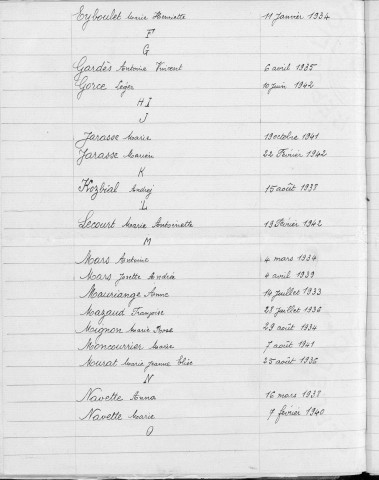 Eyboulet Marie Henriette 11 janvier 1934
F
G
Gardès Antoine Vincent 6 avril 1935
Gorce Léger 10 juin 1942
H I
J
Jarasse Marie 19 octobre 1941
Jarasse Marien 22 Février 1942
K
Kozbial Andrej 15 août 1938
L
Lecourt Marie Antoinette 19 Février 1942
M
Mars Antoine 4 mars 1934
Mars Josette Andrée 4 avril 1939
Mauriange Anne 14 juillet 1933
Mazaud Françoise 28 juillet 1936
Moignon Marie Rose 29 août 1934
Moncourrier Marie 7 août 1941
Mourat Marie Jeanne Elise 25 août 1936
N
Navette Anna 16 mars 1938
Navette Marie 7 février 1940
O